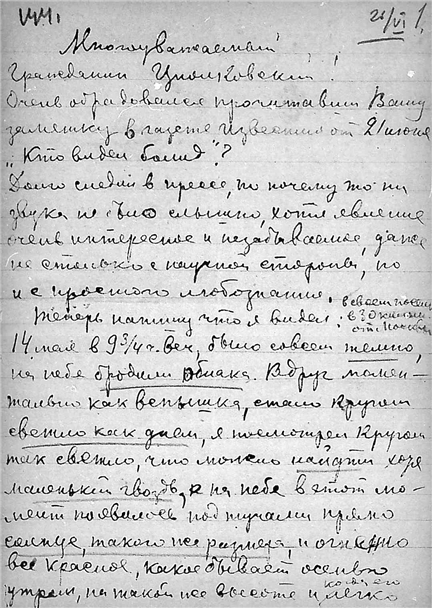 21/VI 1.
Многоуважаемый
Гражданин Циолковский!
Очень обрадовался прочитавши Вашу
заметку в газете Известия от 21 июня
"Кто видел болид"?
Долго следил в прессе, но почему то ни
звука не было слышно, хотя явление
очень интересное и незабываемое даже
не столько с научной стороны, но
и с простого любознания.
Теперь напишу что я видел в своем поселке
в 30 килом.
от Москвы
14 мая в 9 3/4 ч. веч, было совсем темно,
на небе бродили облака. Вдруг момен-
тально как вспышка, стало кругом
светло как днем, я посмотрел кругом
так светло, что можно найти хотя
маленький гвоздь, а на небе в этот мо-
мент появилось под тучами прямо
солнце, такого же размера, и огненно
все красное, какое бывает осенью
утром, на такой же высоте и легко
когда его